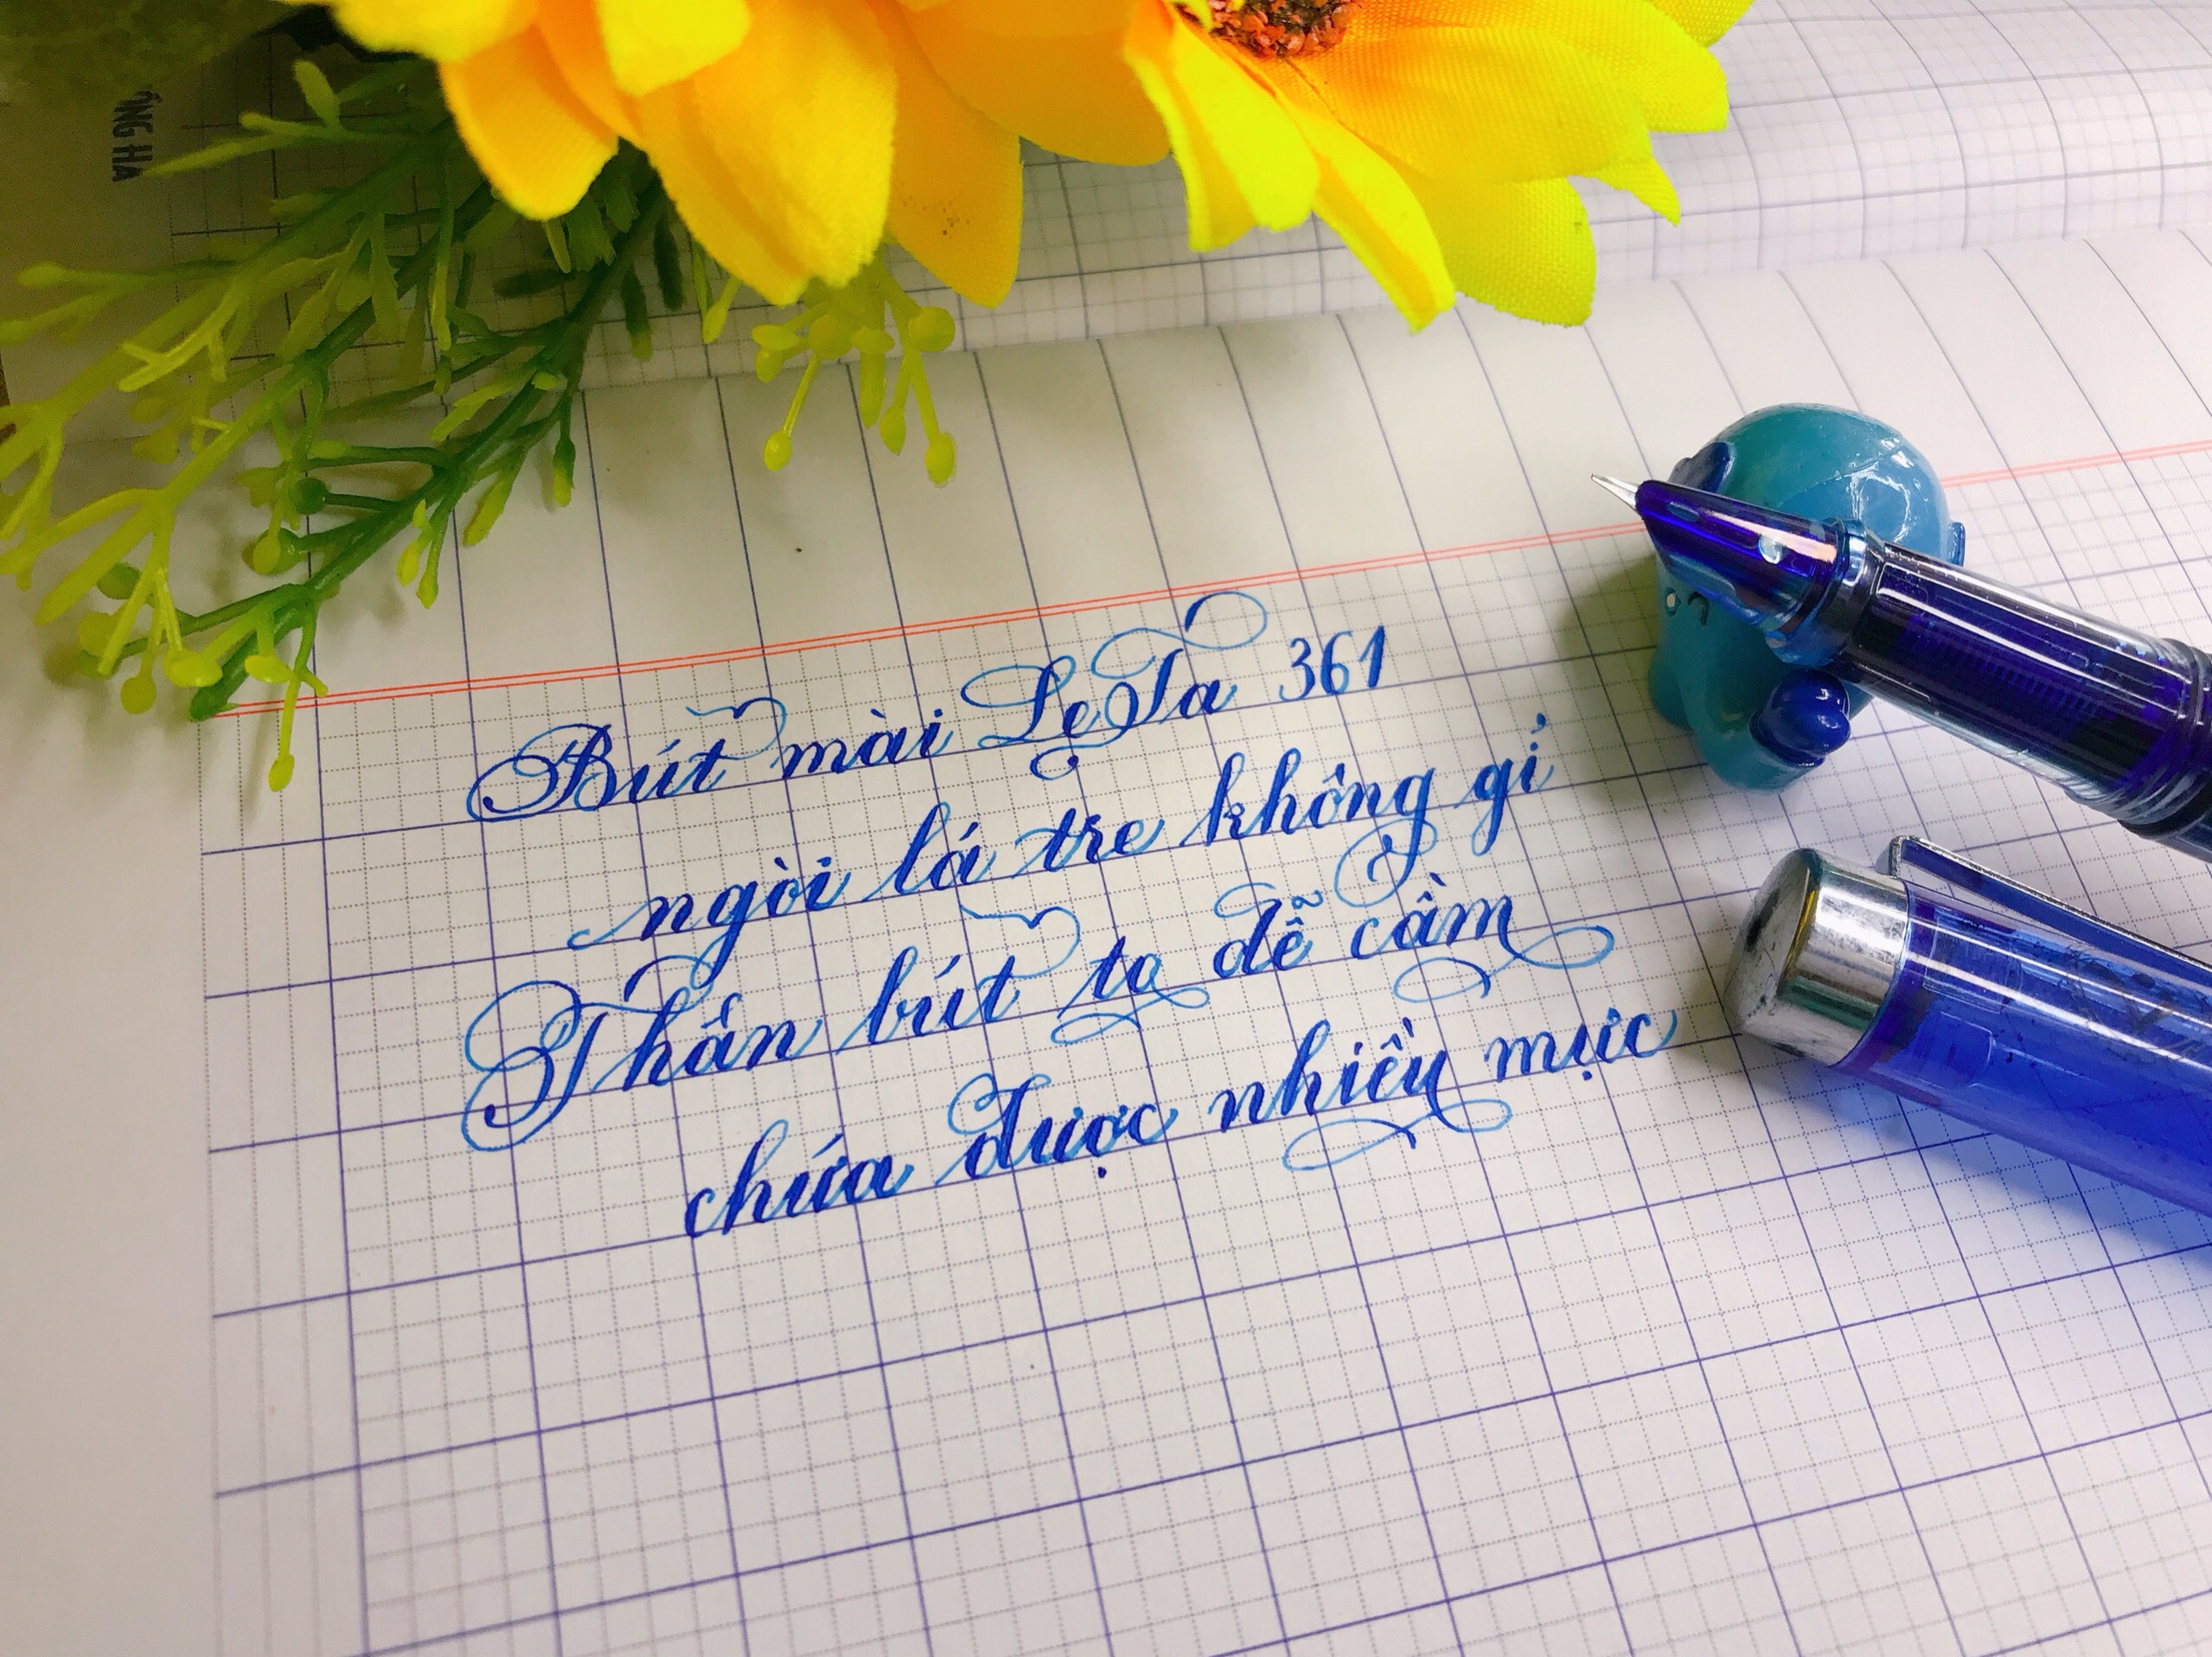 ÔNG HÀ
Bút mài LeTa 361
ngòi lá tre không gỉ
Thân bút to dễ cầm
chứa được nhiều mực